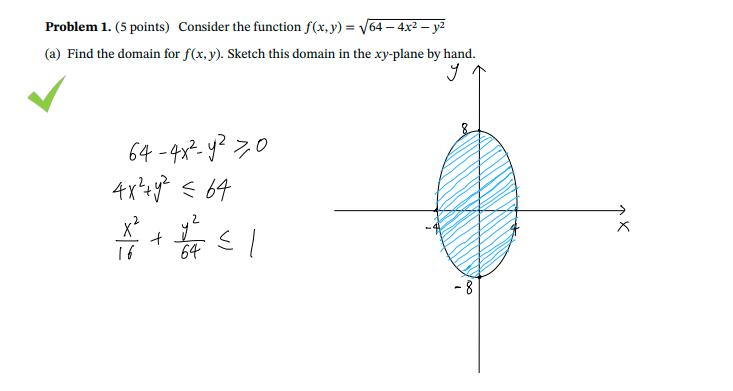 Problem 1. (5 points) Consider the function f(x, y) = √64 − 4x² − y²
(a) Find the domain for f(x, y). Sketch this domain in the xy-plane by hand.
y
8
64 - 4x² - y² ≥ 0
4x² + y² ≤ 64
x²/16 + y²/64 ≤ 1
-4 4 x
-8